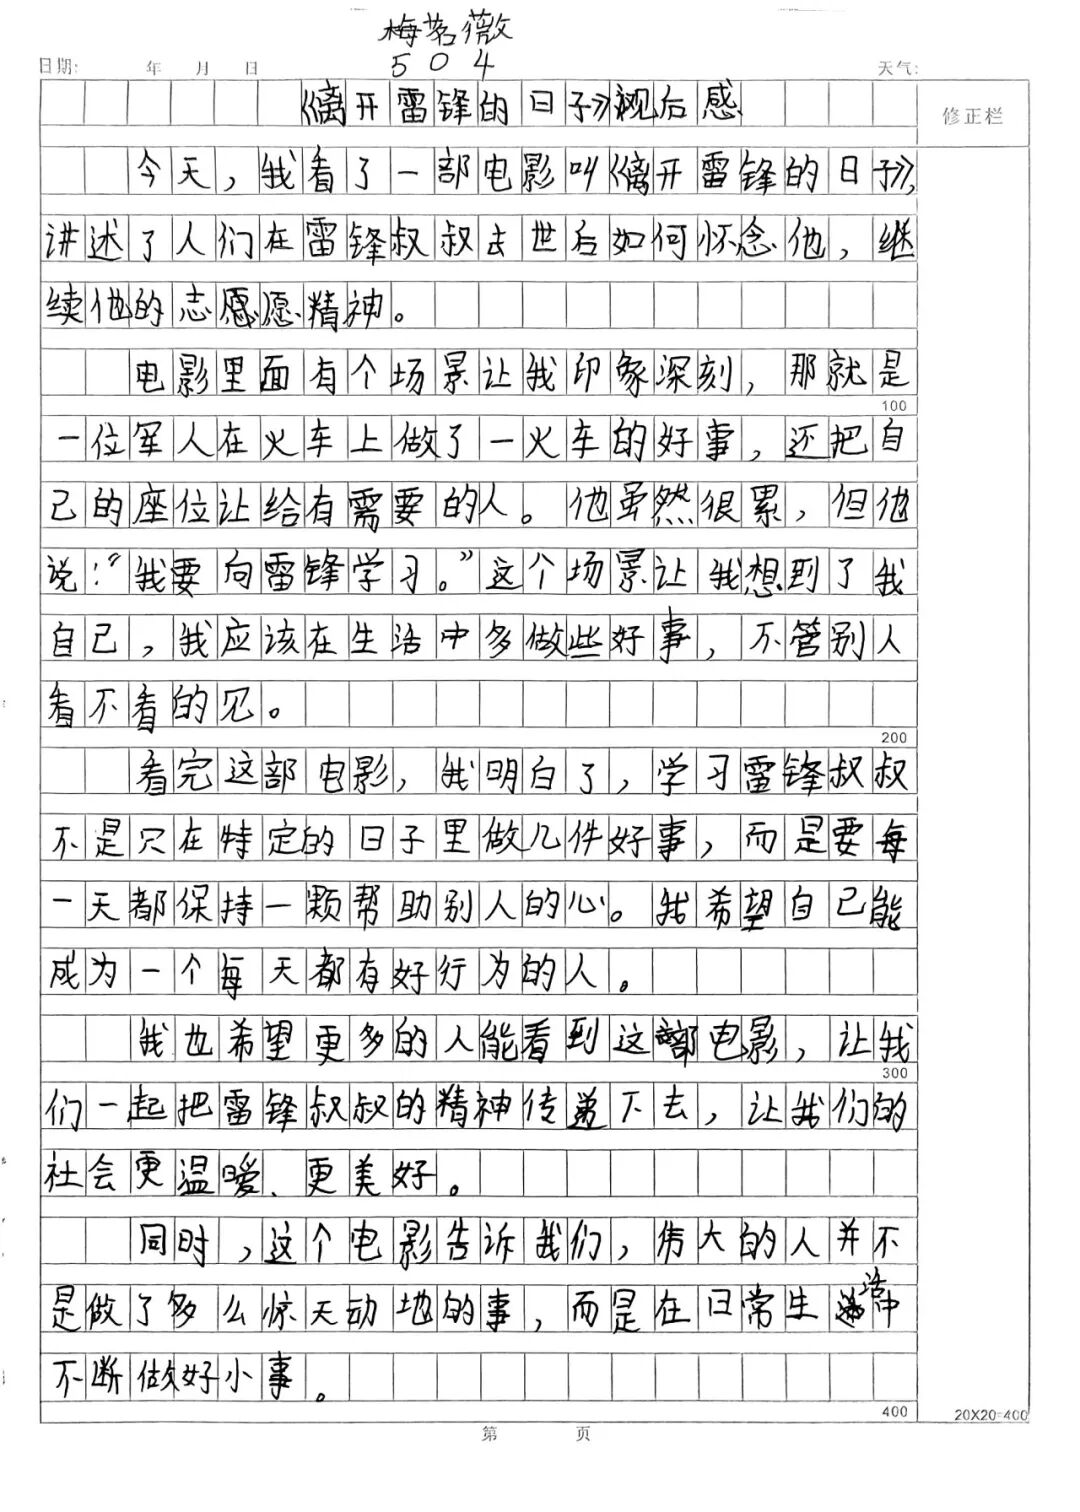 梅茗薇
504
日期： 年 月 日 天气：
《离开雷锋的日子》观后感
修正栏
今天，我看了一部电影叫《离开雷锋的日子》，
讲述了人们在雷锋叔叔去世后如何怀念他，继
续他的志愿愿精神。
电影里面有个场景让我印象深刻，那就是
100
一位军人在火车上做了一火车的好事，还把自
己的座位让给有需要的人。他虽然很累，但他
说：“我要向雷锋学习。”这个场景让我想到了我
自己，我应该在生活中多做些好事，不管别人
看不看的见。
200
看完这部电影，我明白了，学习雷锋叔叔
不是只在特定的日子里做几件好事，而是要每
一天都保持一颗帮助别人的心。我希望自己能
成为一个每天都有好行为的人。
我也希望更多的人能看到这部电影，让我
300
们一起把雷锋叔叔的精神传递下去，让我们的
社会更温暖、更美好。
同时，这个电影告诉我们，伟大的人并不
是做了多么惊天动地的事，而是在日常生活中
不断做好小事。
400
20X20=400
第 页